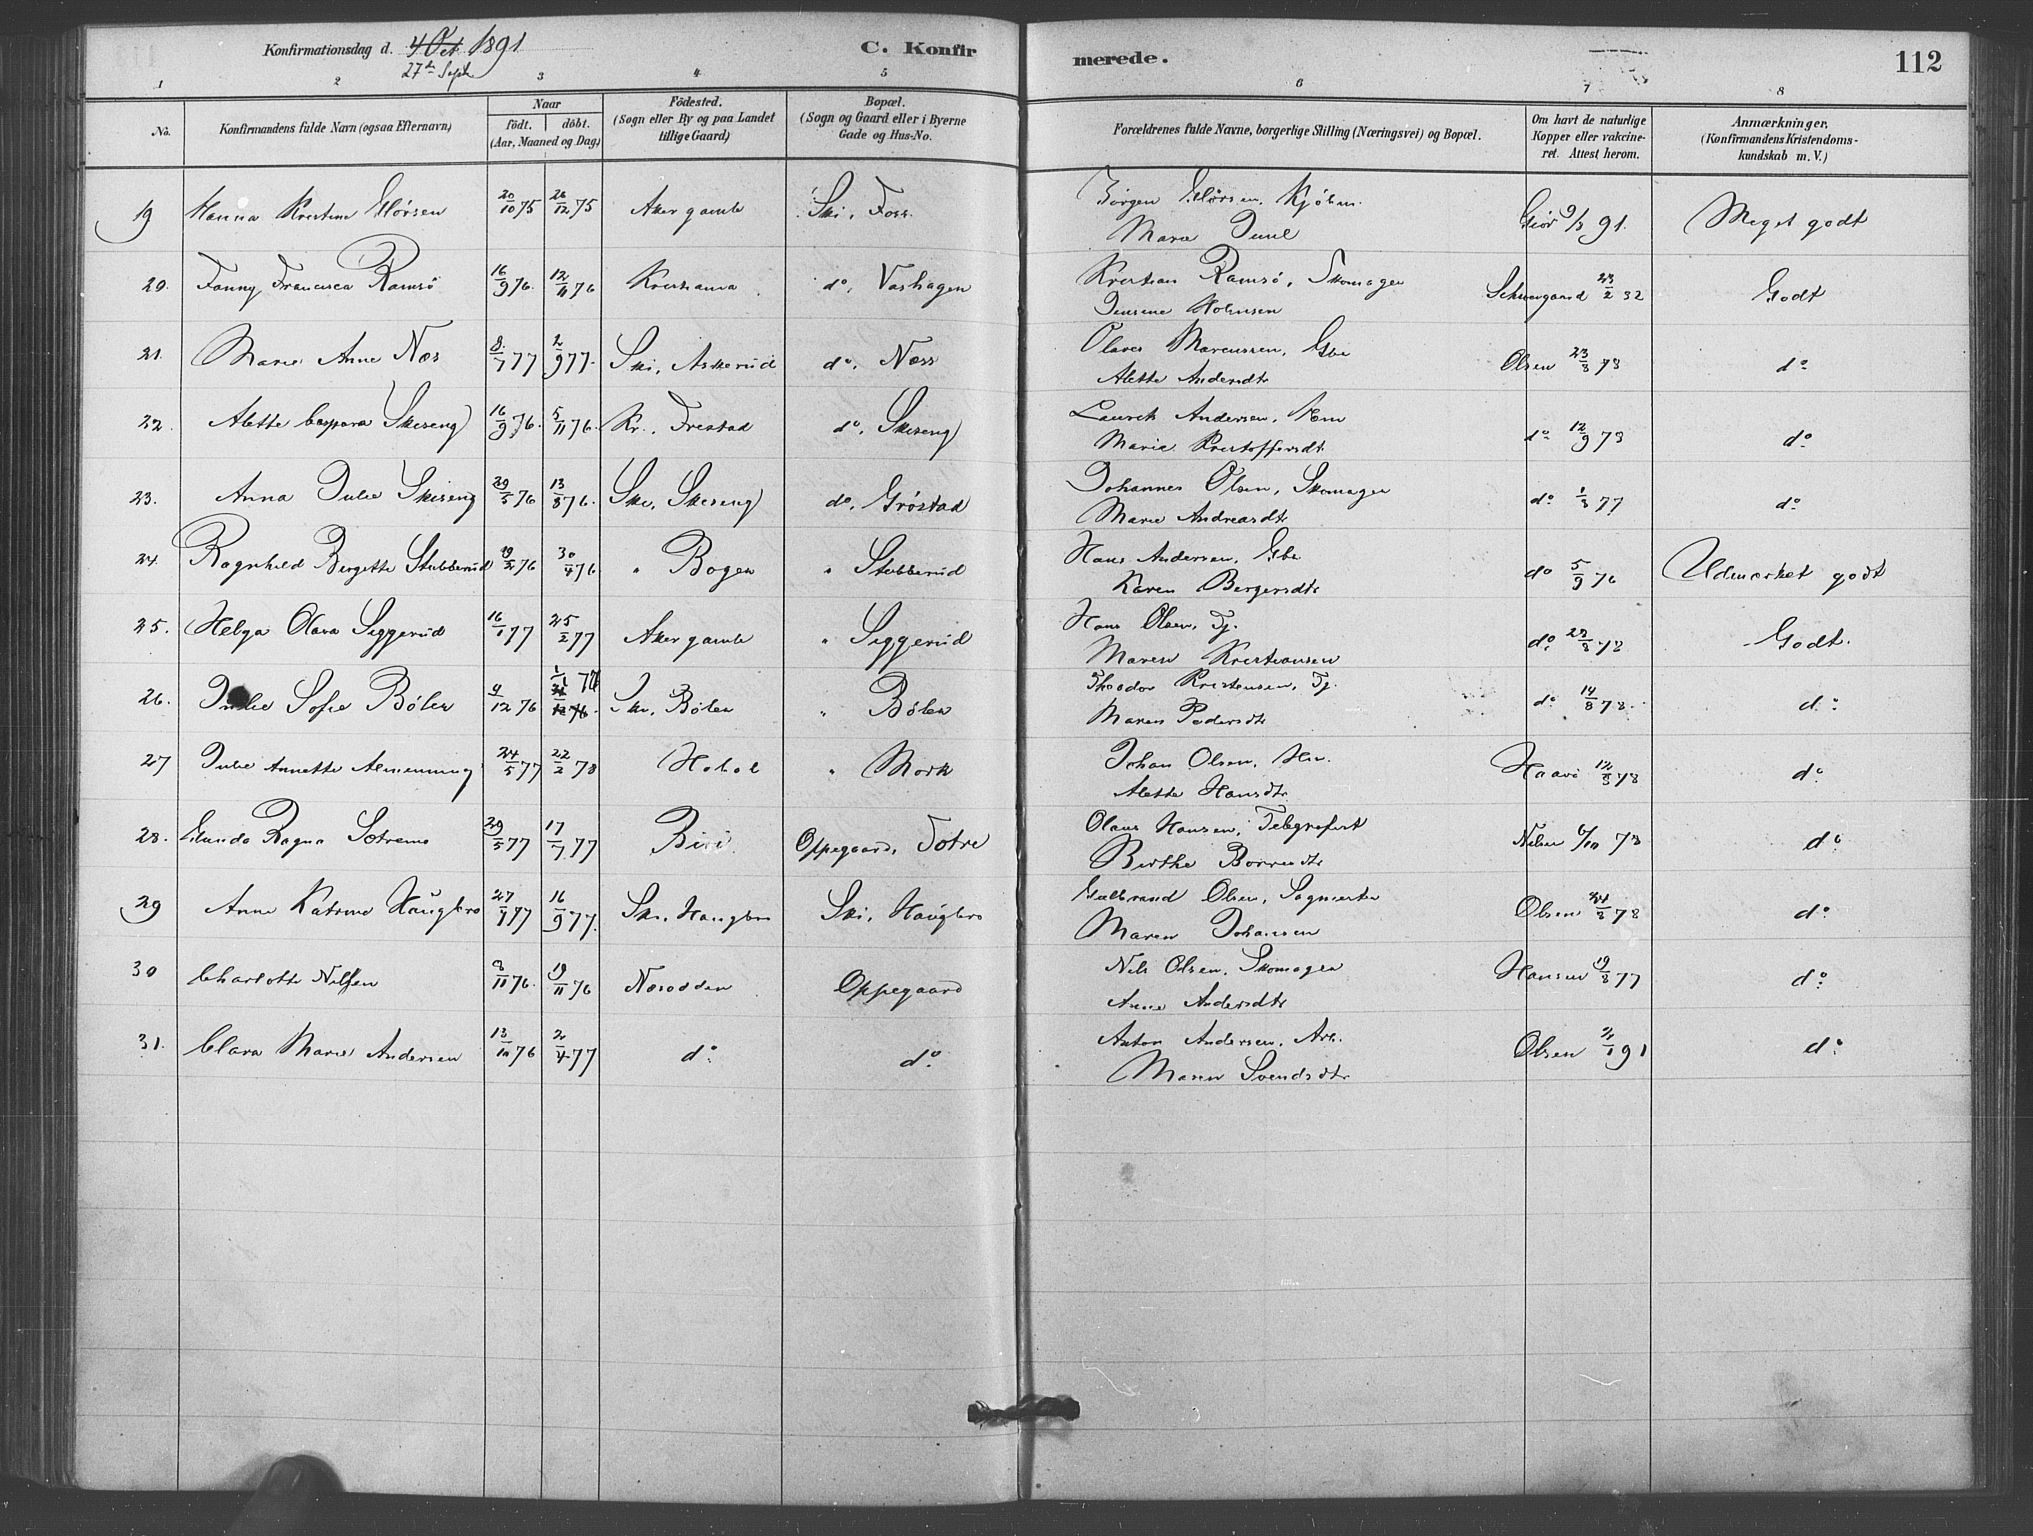 Konfirmationsdag d. 4 Oct. 1891
27de Sept.
C. Konfirmerede.
112
1 2 3 4 5 6 7 8
No.
Konfirmandens fulde Navn (ogsaa Efternavn)
Naar
födt. döbt.
(Aar, Maaned og Dag)
Födested.
(Sogn eller By og paa Landet
tillige Gaard)
Bopæl.
(Sogn og Gaard eller i Byerne
Gade og Hus-No.
Forældrenes fulde Navne, borgerlige Stilling (Næringsvei) og Bopæl.
Om havt de naturlige
Kopper eller vakcine-
ret. Attest herom.
Anmærkninger,
(Konfirmandens Kristendoms-
kundskab m. V.)
19 Hanna Kristine 20/10 75 26/12 75 Aker gamle Ski, Foss 9/3 91. Meget godt
Marie Juul
20. Fanny Francisca Ramsö 16/9 76. 12/11 76 Kristiania do, Vashagen Kristian Ramsö, Skomager 23/2 32 Godt
Jensine Holmsen
21. Marie Anne Næs 8/7 77 2/9 77. Ski, Askerud do, Næss Olaves Marcussen, Gbr Olsen 23/8 78 do
Alette Andersdtr
22. Alette Caspara Skiseng 16/9 76. 5/11 76. Kr., Frestad do, Skiseng Laurits Andersen, do 12/9 78 do
Marie Kristoffersdt.
23. Anna Julie Skiseng 29/5 76 13/8 76. Ski, Skiseng do, Gröstad Johannes Olsen, Skomager do 1/8 77 do
Marie Andreasdtr
24. Ragnhild Bergette Stubberud 19/2 76 30/4 76 " Bogen " Stubberud Hans Andersen, Gbr. do 5/9 76 Udmærket godt
Karen Bergersdtr
25. Helga Olava Siggerud 16/1 77 25/2 77 Aker gamle " Siggerud Hans Olsen, Tj. do 28/8 78 Godt.
Maren Kristiansen
26. Julie Sofie Bölen 4/12 76 1/1 77 31/12 76. Ski, Bölen " Bölen Theodor Kristensen, Tj. do 14/8 78. do
Maren Pedersdtr
27 Julie Annette Almenning 24/5 77 22/2 78 Hobøl " Mork Johan Olsen, Hm. Haave 12/8 78 do
Alette Hansdtr.
28. Gunda Ragna Sætrema 29/5 77 17/7 77 Biri Oppegaard, Totre Olaus Hansen, Telegrafist Nilsen 6/10 78 do
Berthe Borresdtr
29 Anne Katrine Haugbro 27/7 77 16/9 77. Ski, Haugbro Ski, Haugbro Gulbrand Olsen, Sagmester Olsen 24/8 78 do
Maren Johansen
30 Charlotte Nilsen 8/11 76. 19/11 76 Næsodden Oppegaard Nils Olsen, Skomager Hansen 19/8 77 do
Anne Andersdtr
31. Clara Marie Andersen 13/10 76 2/4 77 do do Anton Andersen, Arb. Olsen 2/1 91 do
Maren Svendsdtr